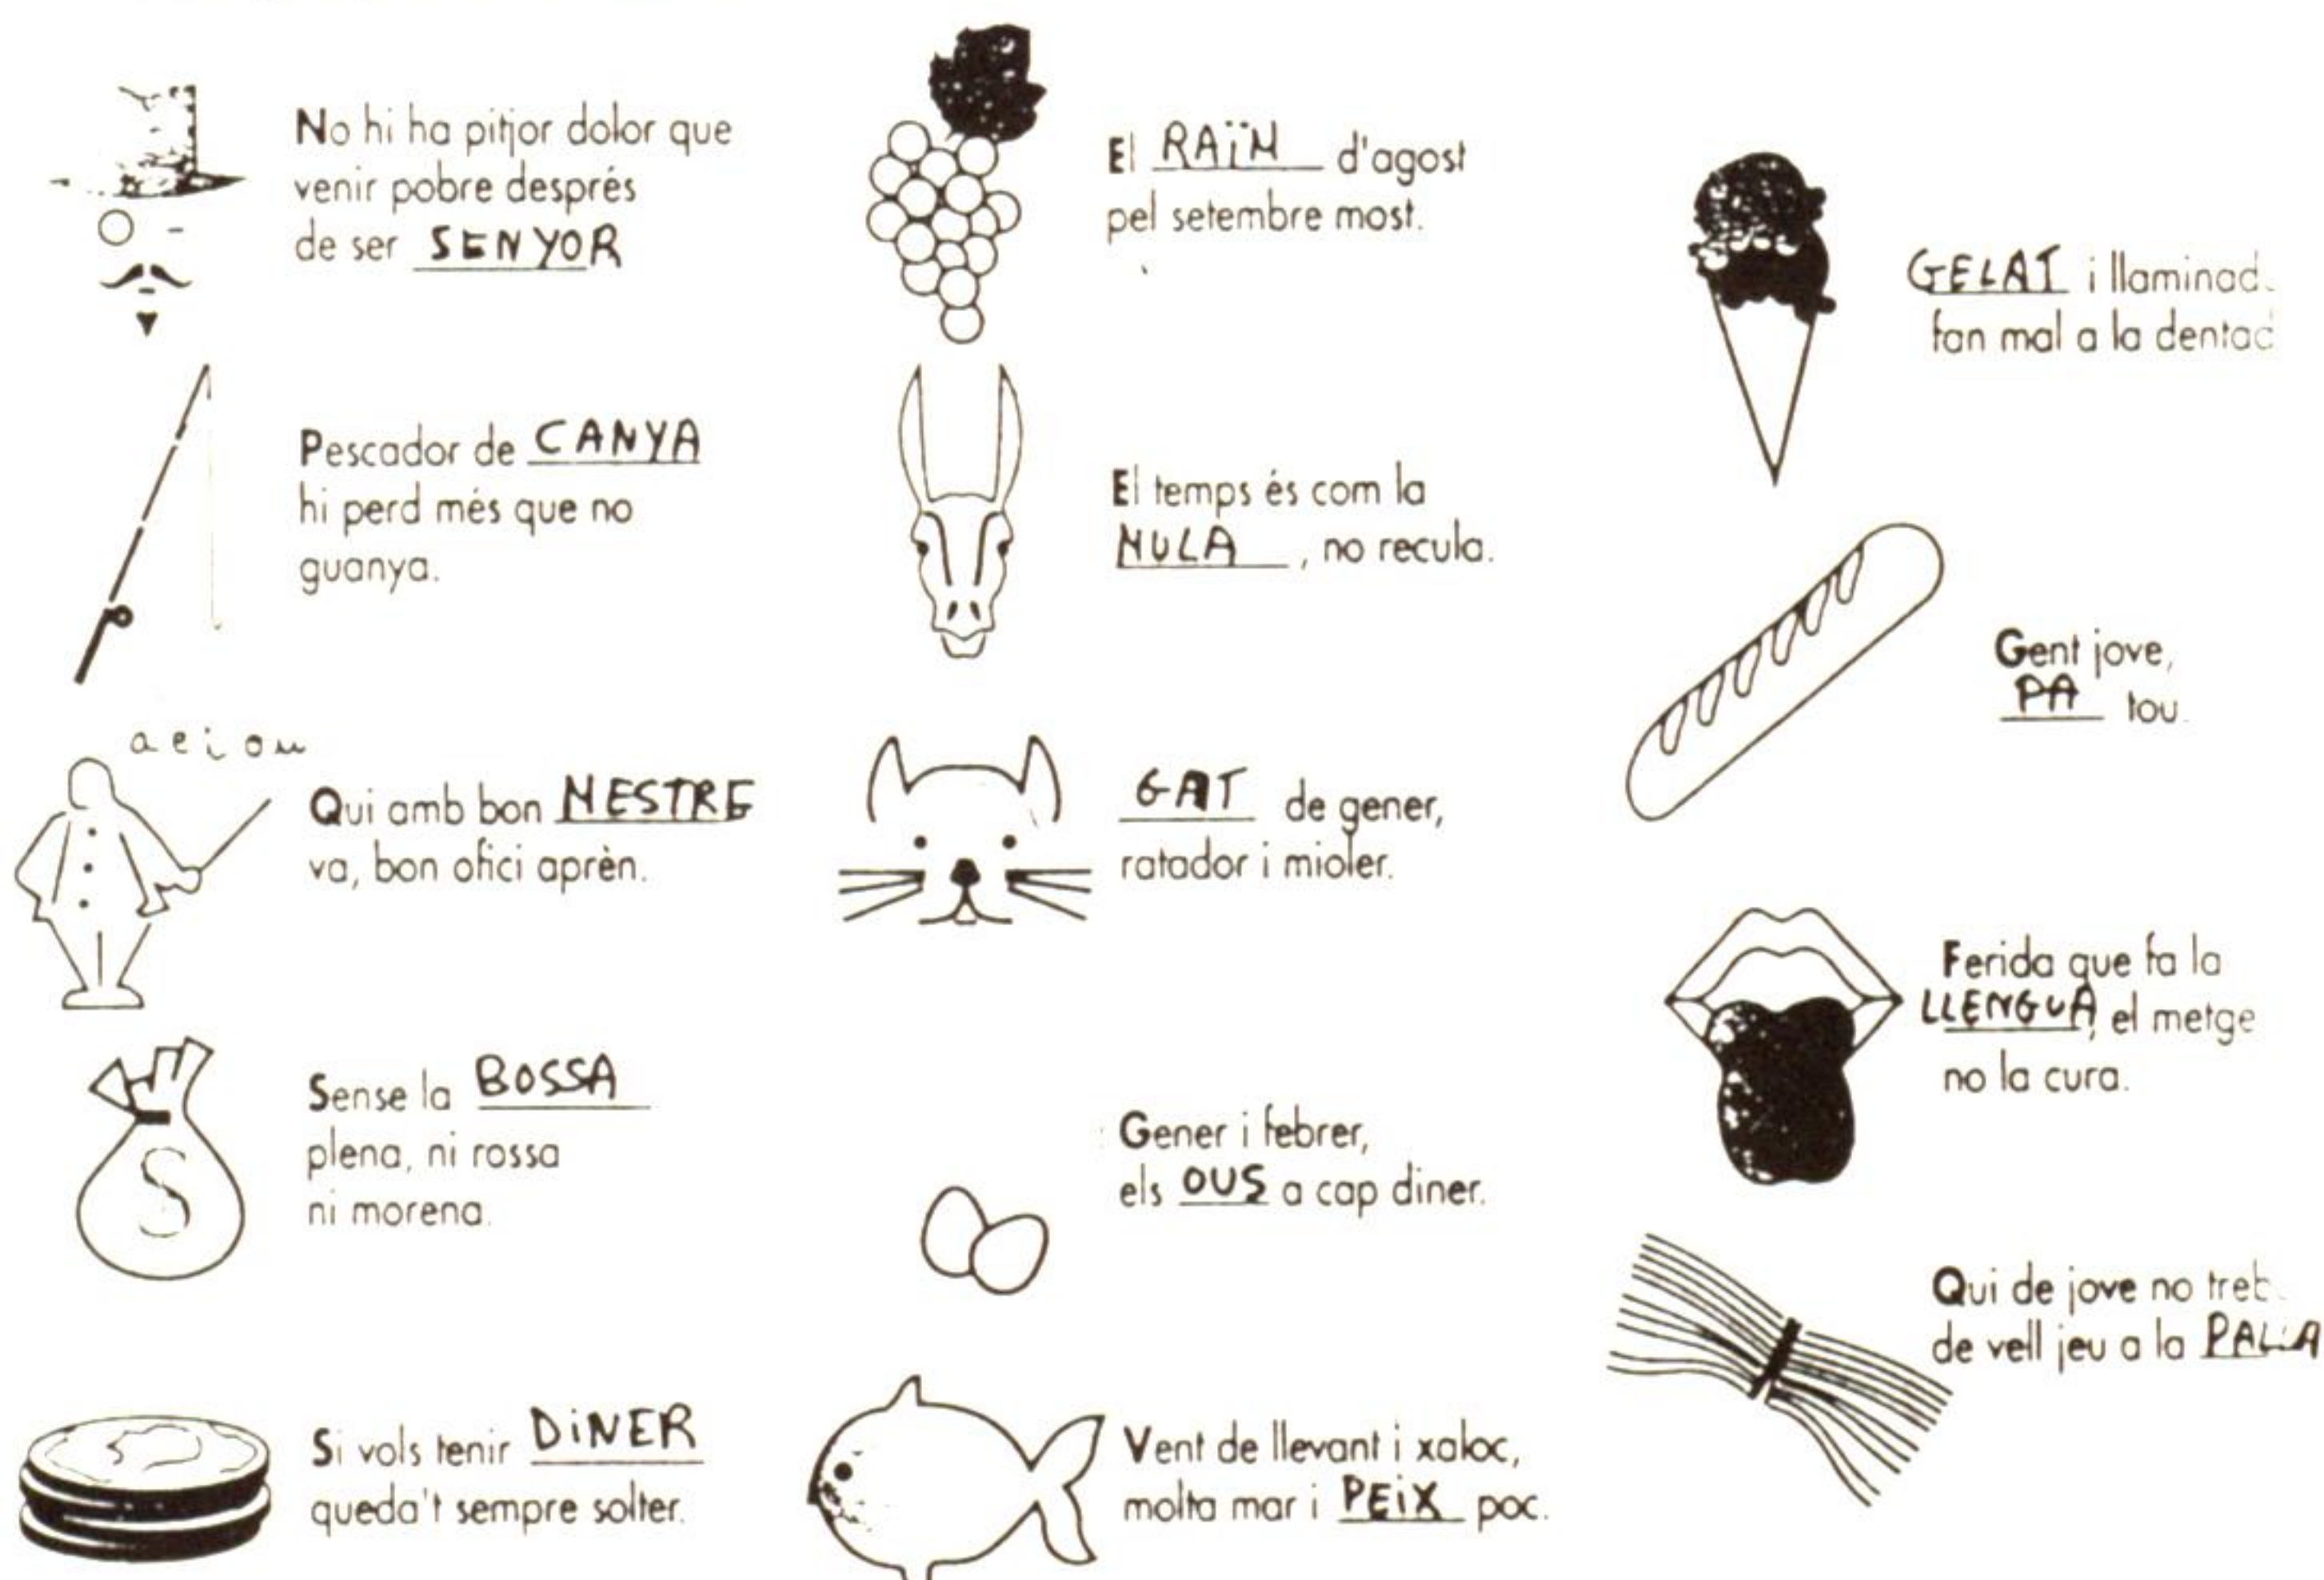 No hi ha pitjor dolor que
venir pobre després
de ser SENYOR
Pescador de CANYA
hi perd més que no
guanya.
a e i o u
Qui amb bon MESTRE
va, bon ofici aprèn.
Sense la BOSSA
plena, ni rossa
ni morena.
S
Si vols tenir DiNER
queda't sempre solter.
El RAÏM d'agost
pel setembre most.
El temps és com la
MULA, no recula.
GAT de gener,
ratador i mioler.
Gener i febrer,
els OUS a cap diner.
Vent de llevant i xaloc,
molta mar i PEiX poc.
GELAT i llaminad
fan mal a la dentad
Gent jove,
PA tou.
Ferida que fa la
LLENGUA, el metge
no la cura.
Qui de jove no treb
de vell jeu a la PALLA